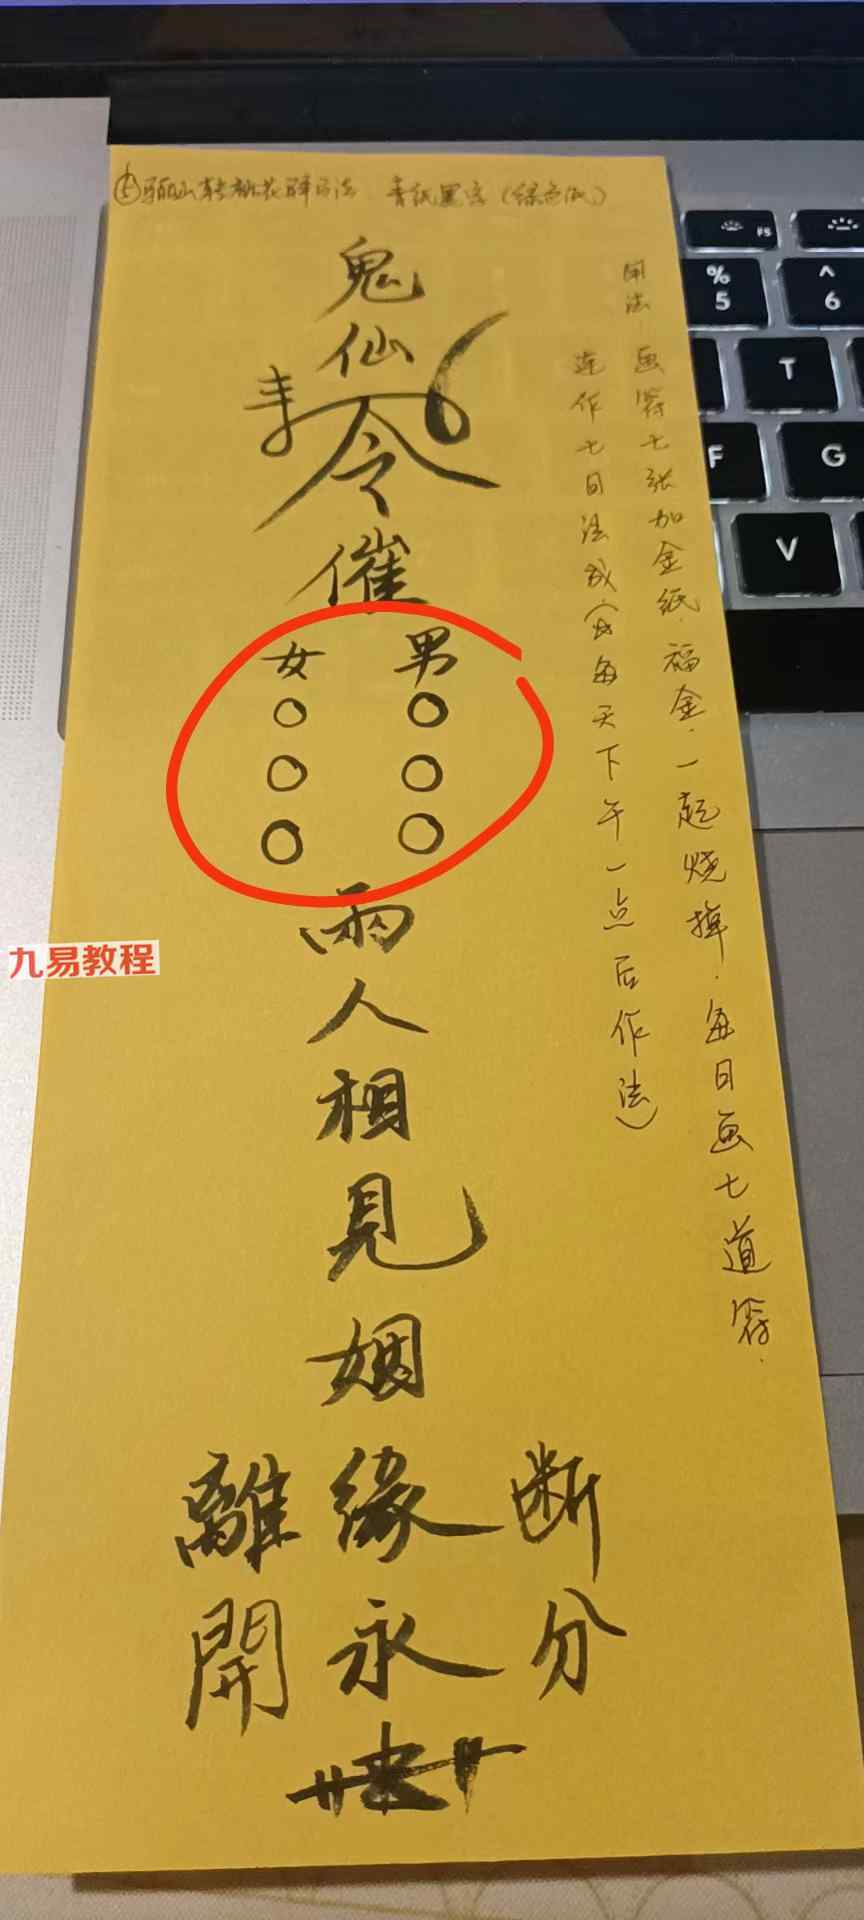 斩桃花 符法 青纸黑字（绿色纸）
用法：画符七张加金纸．福金．一起烧掉．每日画七道符．
连作七日法成（每天下午一点后作法）
鬼
仙
令
催
女 男
○ ○
○ ○
○ ○
兩
人
相
見
姻
離 緣 断
開 永 分
九易教程
F5
% 5
^ 6
T
F G
V